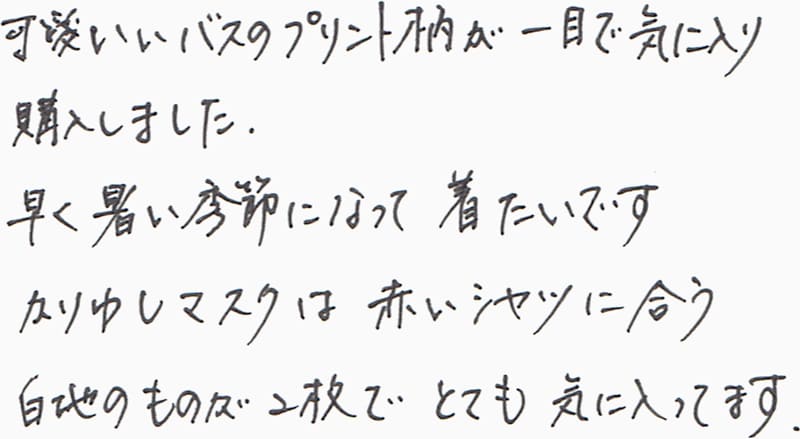 可愛いいバスのプリント柄が一目で気に入り
購入しました.
早く暑い季節になって 着たいです
かりゆしマスクは 赤いシャツに合う
白地のものが2枚で とても 気に入ってます.